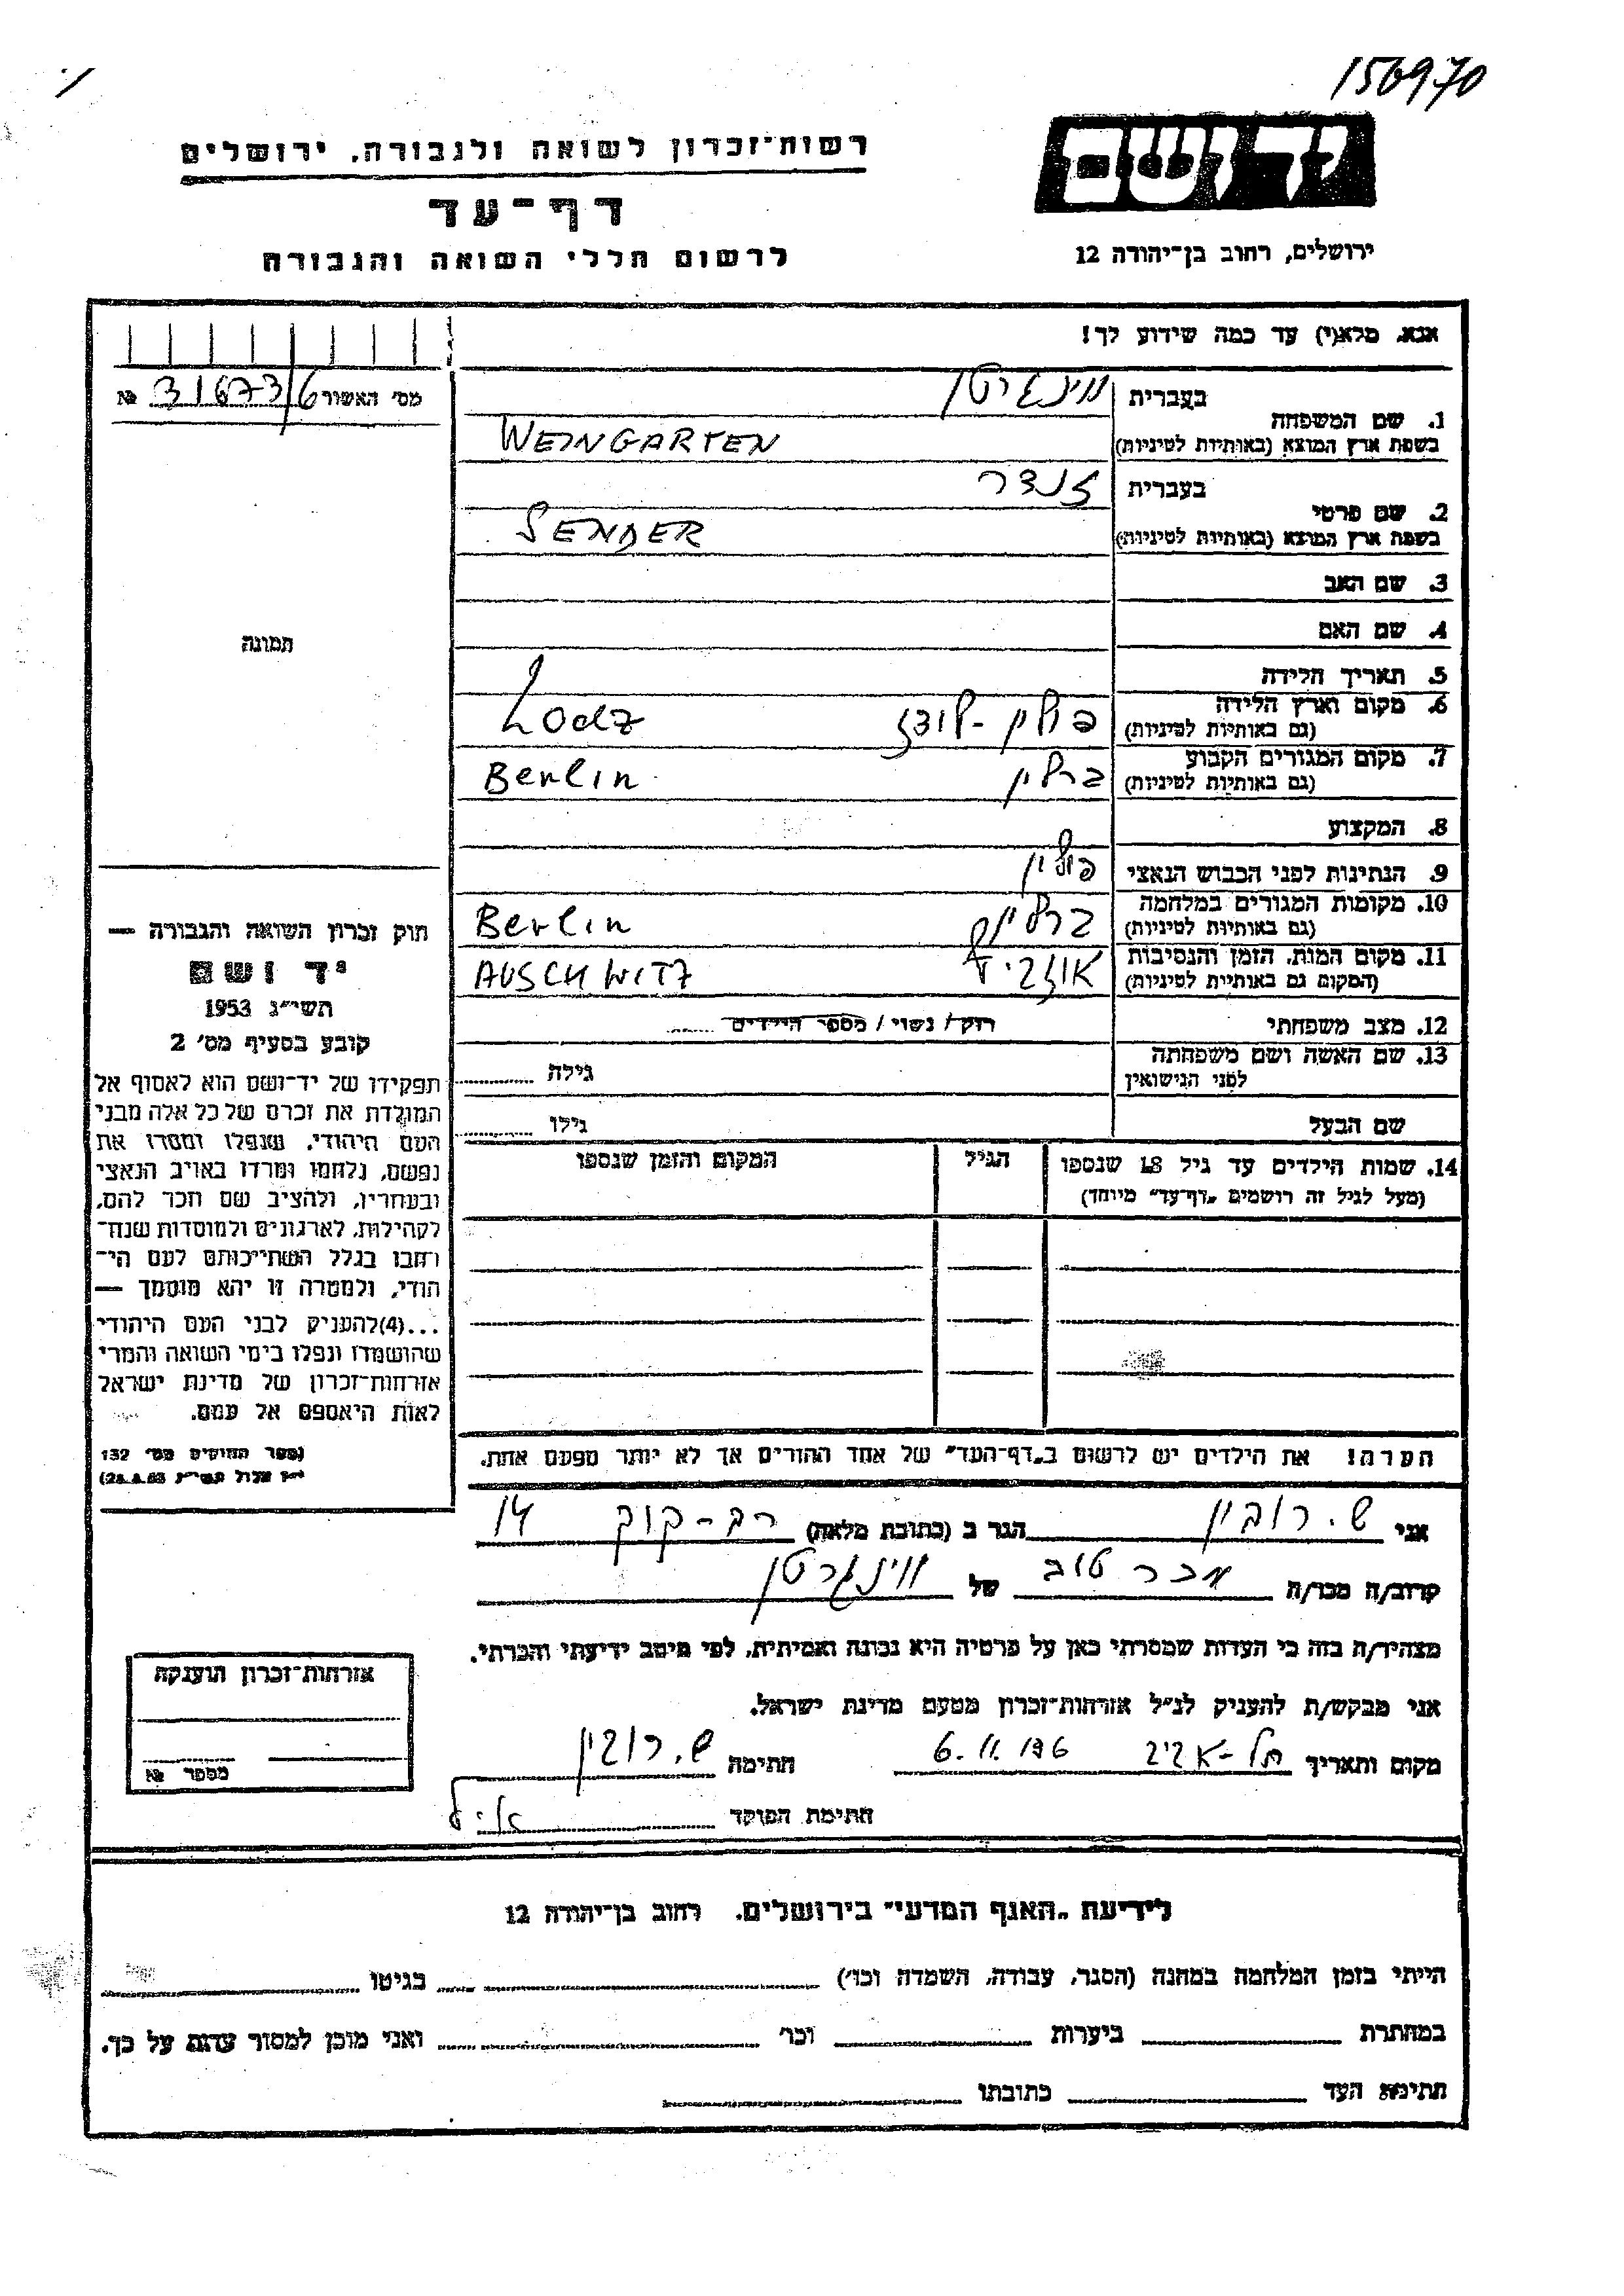 156970
יד ושם
רשות־זכרון לשואה ולגבורה, ירושלים
דף־עד
לרשום חללי השואה והגבורה
ירושלים, רחוב בן־יהודה 12
אנא, מלא(י) עד כמה שידוע לך!
מס' האשור № 31673/6
1. שם המשפחה
בעברית וינגרטן
בשפת ארץ המוצא (באותיות לטיניות) WEINGARTEN
2. שם פרטי
בעברית זנדר
בשפת ארץ המוצא (באותיות לטיניות) SENDER
3. שם האב
4. שם האם
תמונה
5. תאריך הלידה
6. מקום וארץ הלידה פולין - לודז Lodz
(גם באותיות לטיניות)
7. מקום המגורים הקבוע ברלין Berlin
(גם באותיות לטיניות)
8. המקצוע
9. הנתינות לפני הכבוש הנאצי פולין
10. מקומות המגורים במלחמה ברלין Berlin
(גם באותיות לטיניות)
11. מקום המות, הזמן והנסיבות AUSCHWITZ
(המקום גם באותיות לטיניות)
12. מצב משפחתי רווק / נשוי / מספר הילדים
13. שם האשה ושם משפחתה
לפני הנישואין גילה
שם הבעל גילו
14. שמות הילדים עד גיל 18 שנספו הגיל המקום והזמן שנספו
(מעל לגיל זה רושמים „דף־עד" מיוחד)
הערה! את הילדים יש לרשום ב„דף־העד" של אחד ההורים אך לא יותר מפעם אחת.
חוק זכרון השואה והגבורה —
יד ושם
תשי"ג 1953
קובע בסעיף מס' 2
תפקידו של יד־ושם הוא לאסוף אל
המולדת את זכרם של כל אלה מבני
העם היהודי, שנפלו ומסרו את
נפשם, נלחמו ומרדו באויב הנאצי
ובעוזריו, ולהציב שם וזכר להם,
לקהילות, לארגונים ולמוסדות שנח־
רבו בגלל השתייכותם לעם הי־
הודי, ולמטרה זו יהא מוסמך —
...(4)להעניק לבני העם היהודי
שהושמדו ונפלו בימי השואה והמרי
אזרחות־זכרון של מדינת ישראל
לאות היאספם אל עמם.
(ספר החוקים מס' 132
אלול תשי"ג 28.8.53)
אני ש. רובין הגר ב (כתובת מלאה) רב - קוק 14
קרוב/ה מכר/ה מכר טוב של וינגרטן
מצהיר/ה בזה כי העדות שמסרתי כאן על פרטיה היא נכונה ואמיתית, לפי מיטב ידיעתי והכרתי.
אני מבקש/ת להעניק לנ"ל אזרחות־זכרון מטעם מדינת ישראל.
מקום ותאריך תל - אביב 6.11.176 חתימה ש. רובין
חתימת הפוקד
אזרחות־זכרון הוענקה
מספר №
לידיעת „האגף המדעי" בירושלים, רחוב בן־יהודה 12
הייתי בזמן המלחמה במחנה (הסגר, עבודה, השמדה וכו') בגיטו
במחתרת ביערות וכו' ואני מוכן למסור עדות על כך.
חתימת העד כתובתו